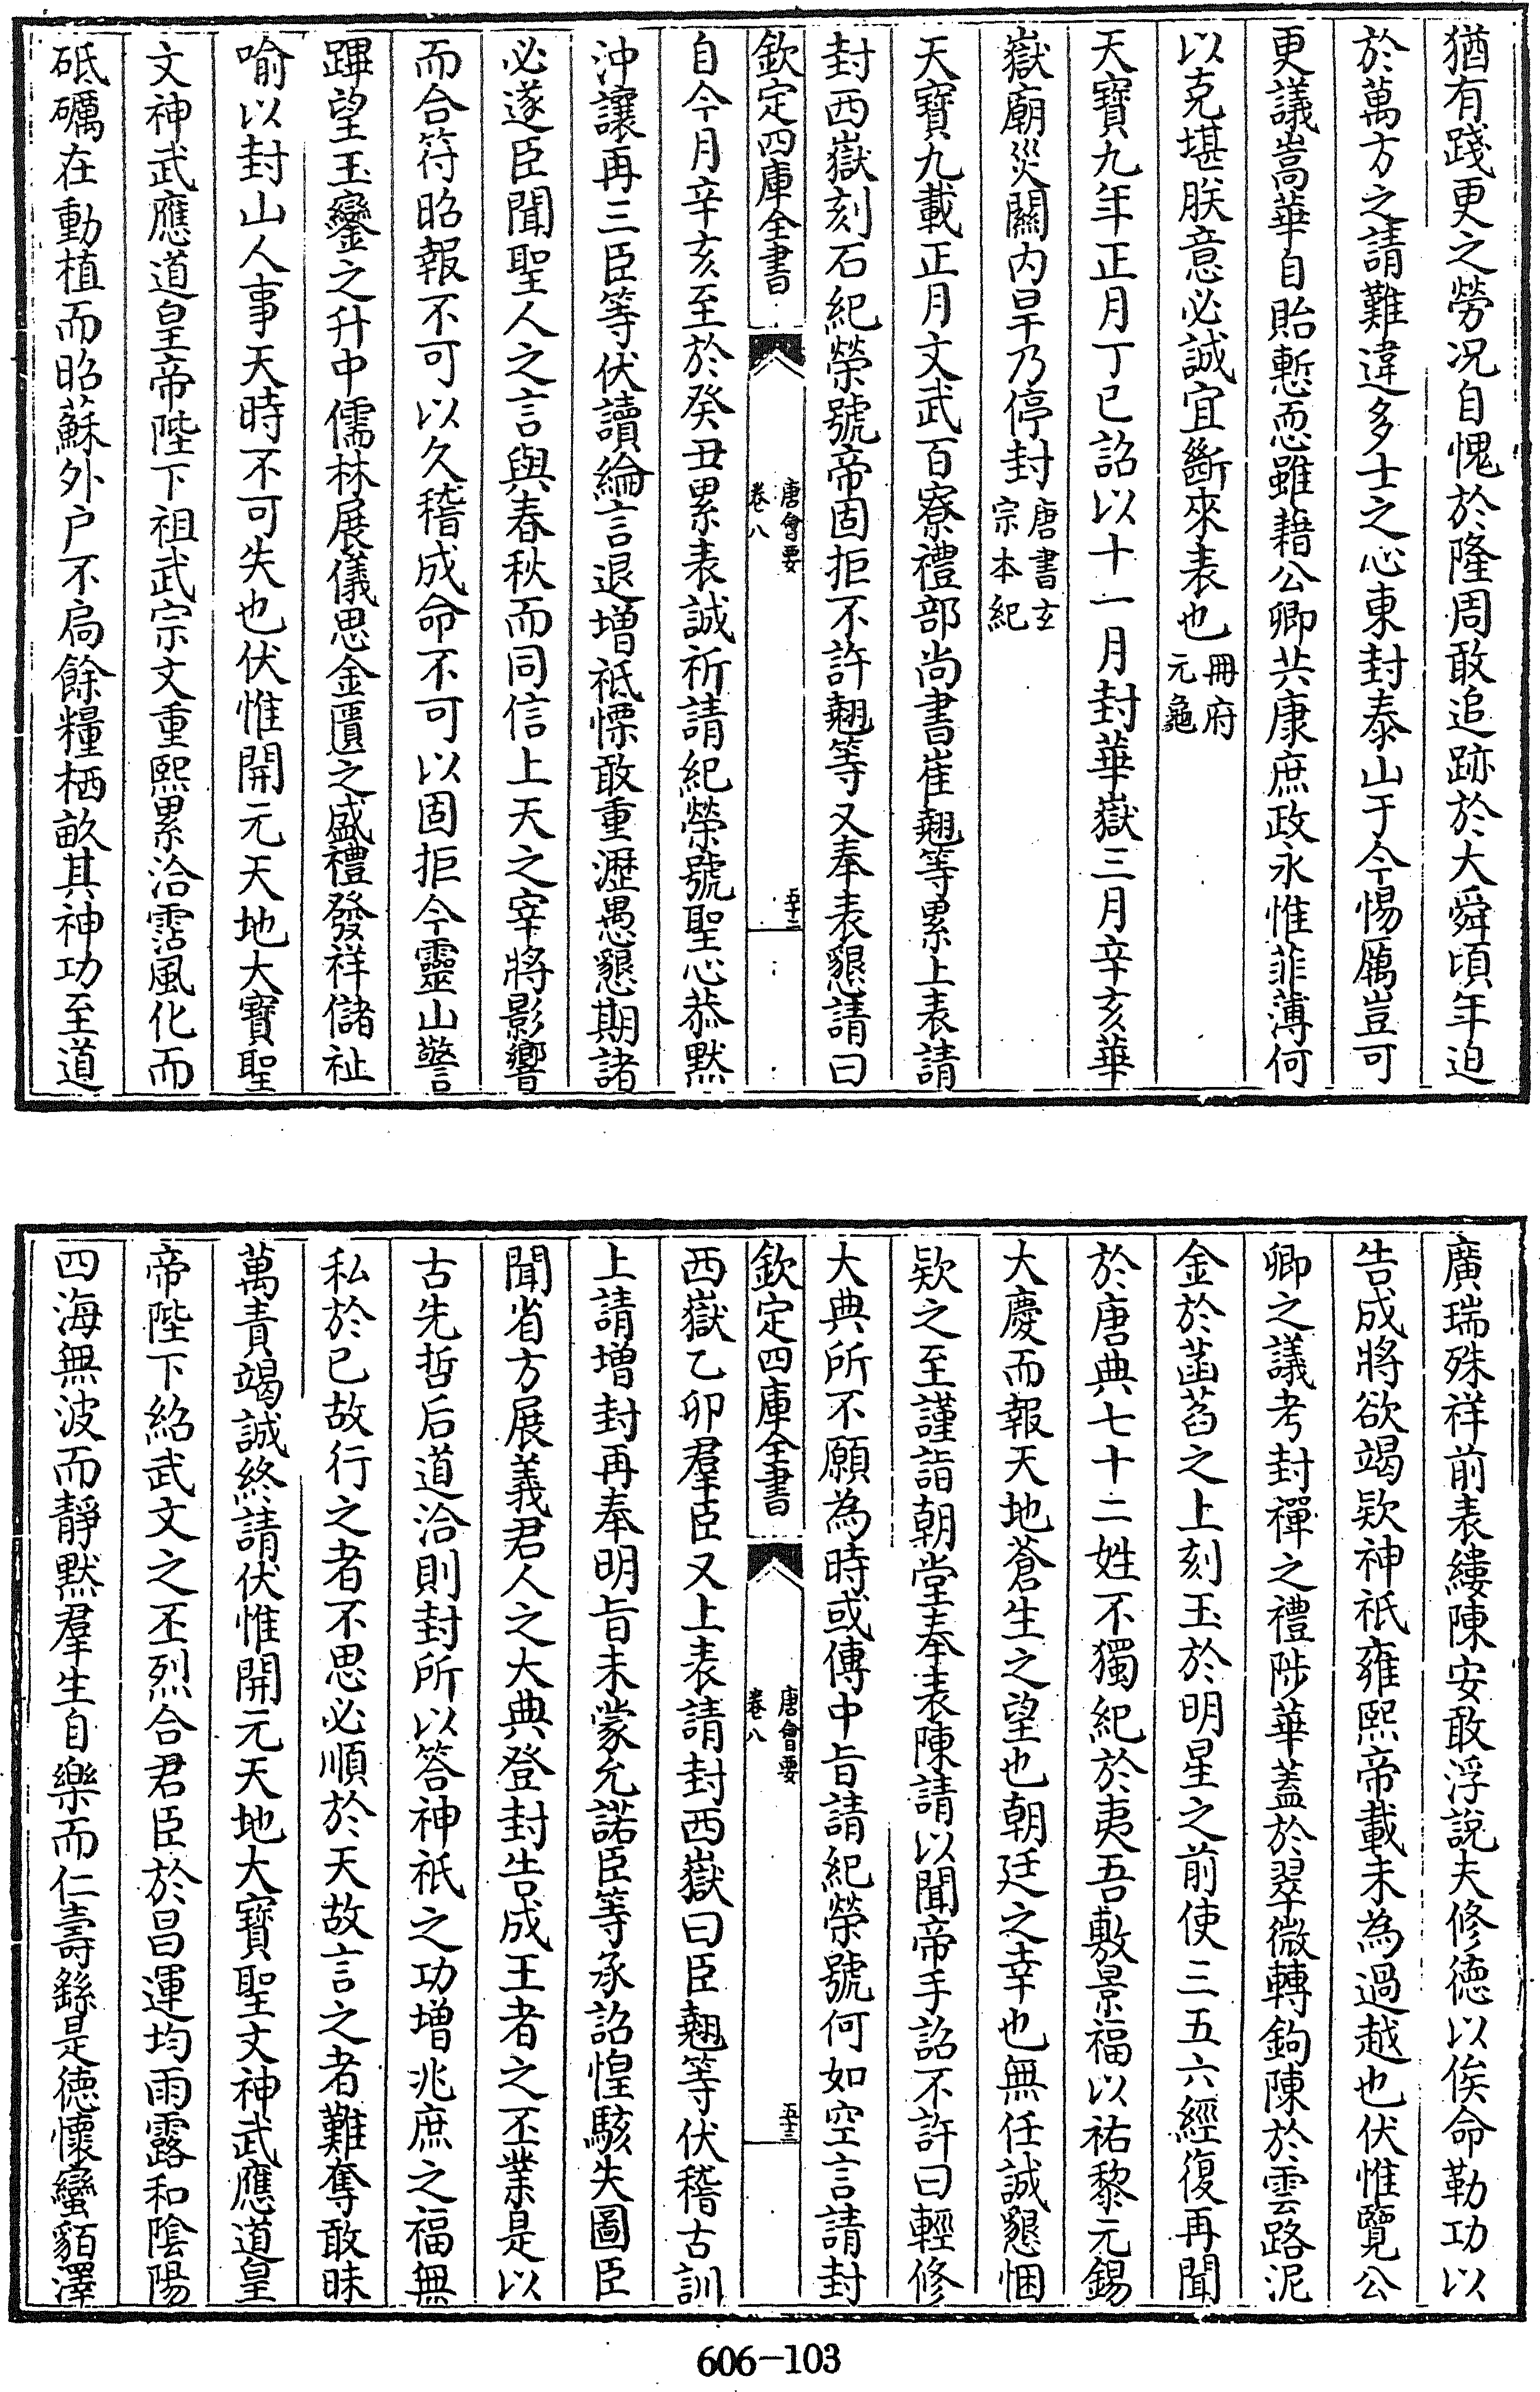 猶有踐更之勞况自愧於隆周敢追跡於大舜頃年迫
於萬方之請難違多士之心東封泰山于今惕厲豈可
更議嵩華自貽慙恧雖藉公卿共康庶政永惟菲薄何
以克堪朕意必誠宜斷來表也冊府元龜
天寶九年正月丁巳詔以十一月封華嶽三月辛亥華
嶽廟災關内旱乃停封唐書玄宗本紀
天寶九載正月文武百寮禮部尚書崔翹等累上表請
封西嶽刻石紀榮號帝固拒不許翹等又奉表懇請曰
欽定四庫全書 唐會要 卷八 五十二
自今月辛亥至於癸丑累表誠祈請紀榮號聖心恭默
沖讓再三臣等伏讀綸言退增祗慄敢重瀝愚懇期諸
必遂臣聞聖人之言與春秋而同信上天之宰將影響
而合符昭報不可以久稽成命不可以固拒今靈山警
蹕望玉鑾之升中儒林展儀思金匱之盛禮發祥儲祉
喻以封山人事天時不可失也伏惟開元天地大寶聖
文神武應道皇帝陛下祖武宗文重熙累洽霑風化而
砥礪在動植而昭蘇外户不扃餘糧栖畝其神功至道
廣瑞殊祥前表縷陳安敢浮說夫修徳以俟命勒功以
告成將欲竭欵神祇雍熙帝載未為過越也伏惟覽公
卿之議考封禪之禮陟華蓋於翠微轉鉤陳於雲路泥
金於菡萏之上刻玉於明星之前使三五六經復再聞
於唐典七十二姓不獨紀於夷吾敷景福以祐黎元錫
大慶而報天地蒼生之望也朝廷之幸也無任誠懇悃
欵之至謹詣朝堂奉表陳請以聞帝手詔不許曰輕修
大典所不願為時或傳中旨請紀榮號何如空言請封
欽定四庫全書 唐會要 卷八 五十三
西嶽乙卯羣臣又上表請封西嶽曰臣翹等伏稽古訓
上請增封再奉明旨未蒙允諾臣等承詔惶駭失圖臣
聞省方展義君人之大典登封告成王者之丕業是以
古先哲后道洽則封所以答神祇之功增兆庶之福無
私於已故行之者不思必順於天故言之者難奪敢昧
萬責竭誠終請伏惟開元天地大寶聖文神武應道皇
帝陛下紹武文之丕烈合君臣於昌運均雨露和陰陽
四海無波而靜默羣生自樂而仁壽繇是徳懷蠻貊澤
606-103